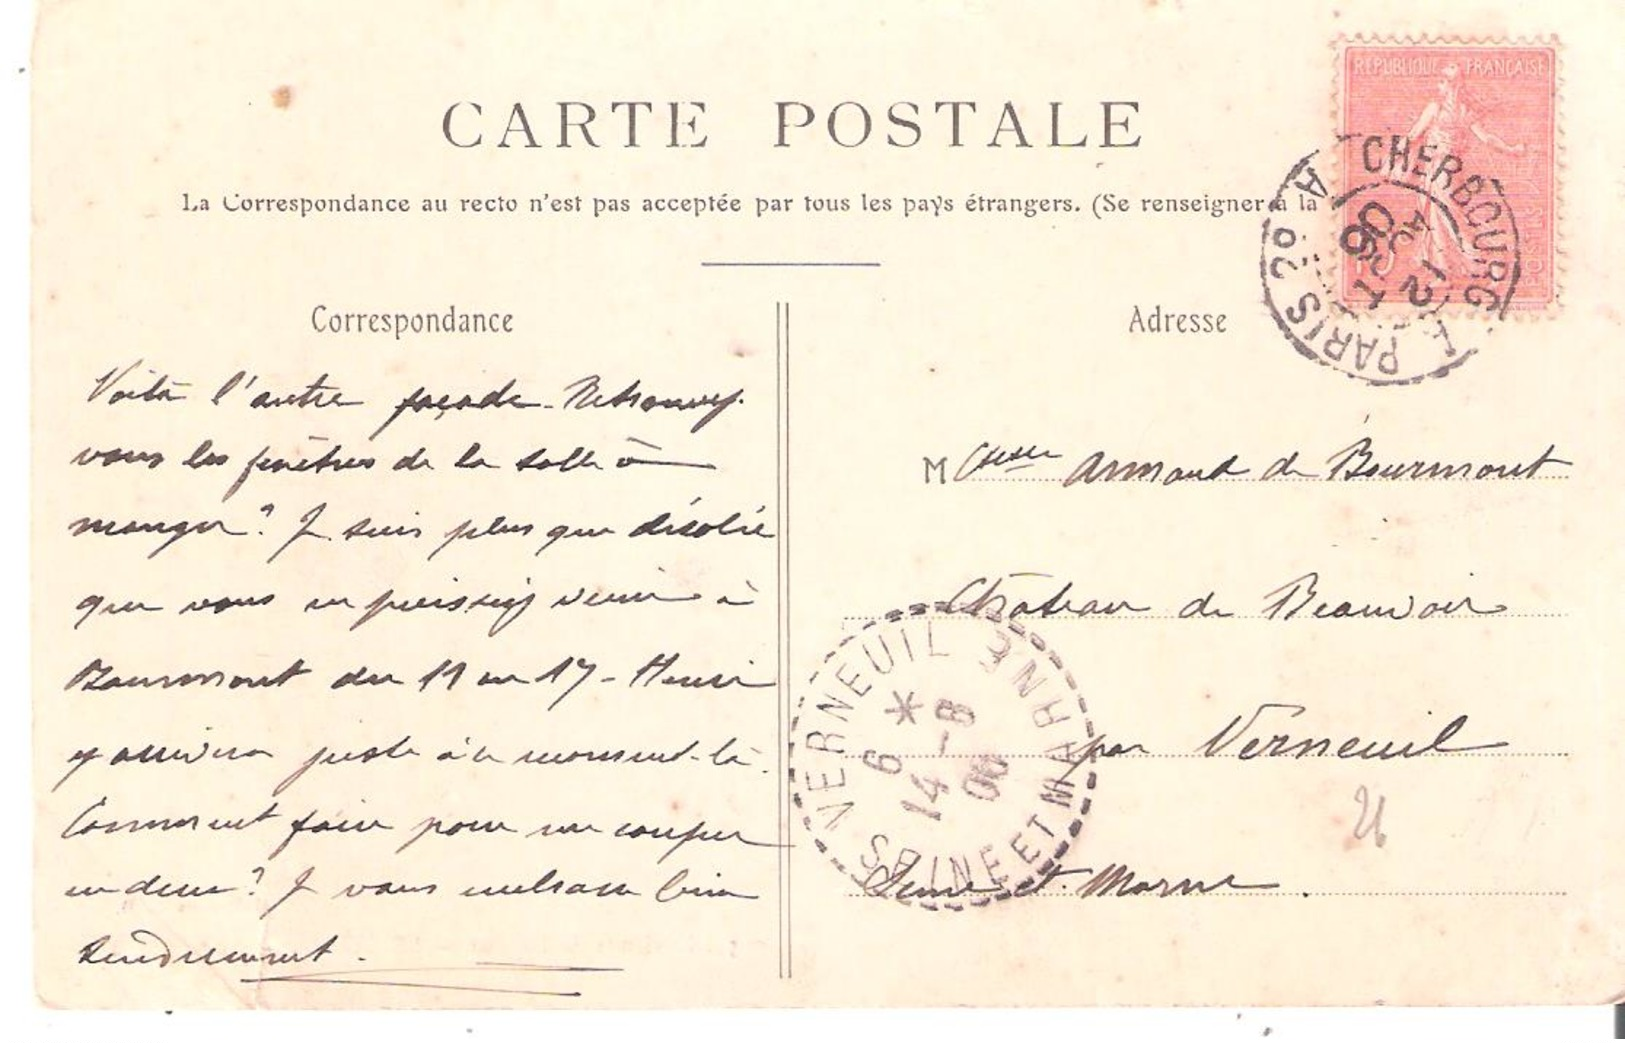 CARTE POSTALE
La Correspondance au recto n'est pas acceptée par tous les pays étrangers. (Se renseigner à la
REPUBLIQUE FRANÇAISE
CHERBOURG A PARIS 2o A
12 AOUT 06
Correspondance
Voilà l'autre façade. Retrouvez
vous les fenêtres de la salle à
manger? Je suis plus que désolée
que vous ne puissiez venir à
Bourmont du 11 au 17 - Henri
y arrivera juste à ce moment-là.
Comment faire pour me couper
en deux? Je vous embrasse bien
tendrement.
Adresse
M Ctesse Armand de Bourmont
Château de Beauvoir
par Verneuil
Seine et Marne.
VERNEUIL SEINE ET MARNE
6 * 14 -8 06